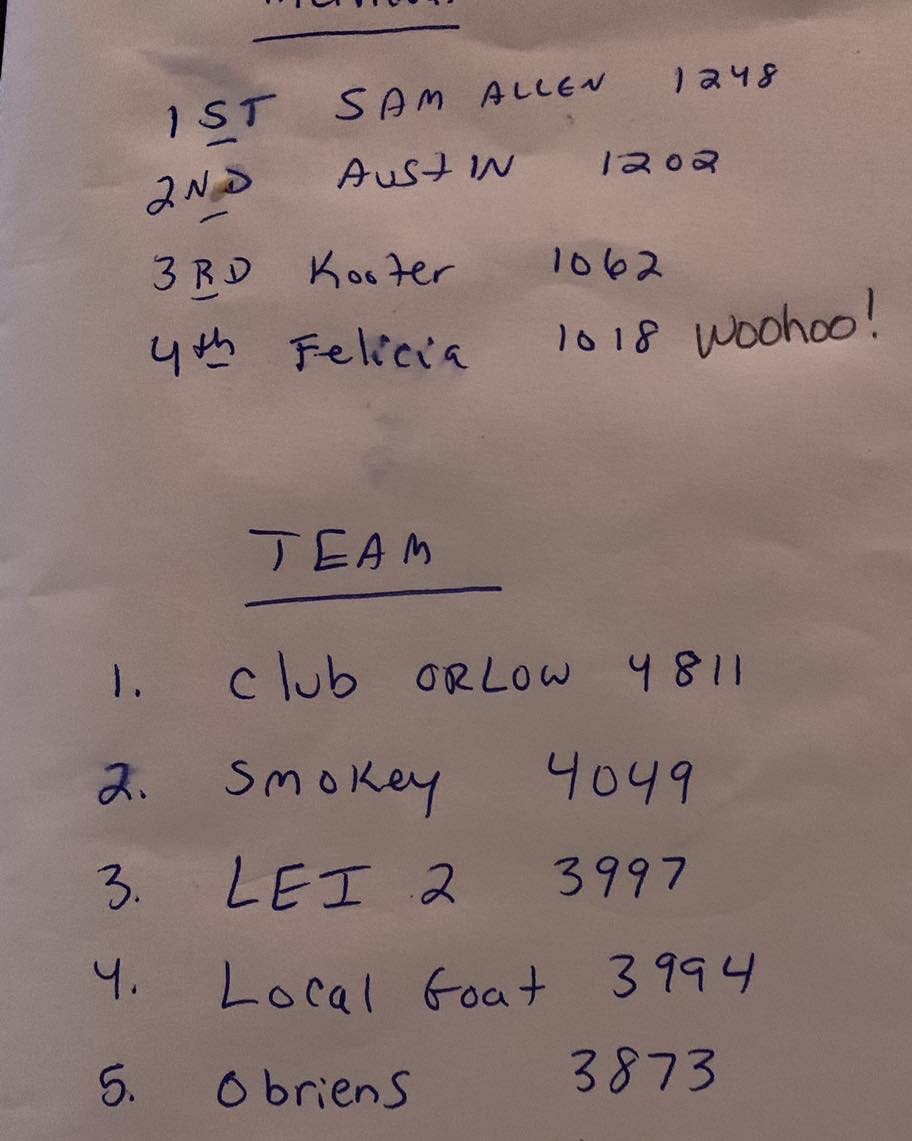 1ST SAM ALLEN 1248
2ND AustIN 1202
3RD Kooter 1062
4th Felicia 1018 Woohoo!
TEAM
1. Club ORLOW 4811
2. Smokey 4049
3. LEI 2 3997
4. Local Goat 3994
5. Obriens 3873